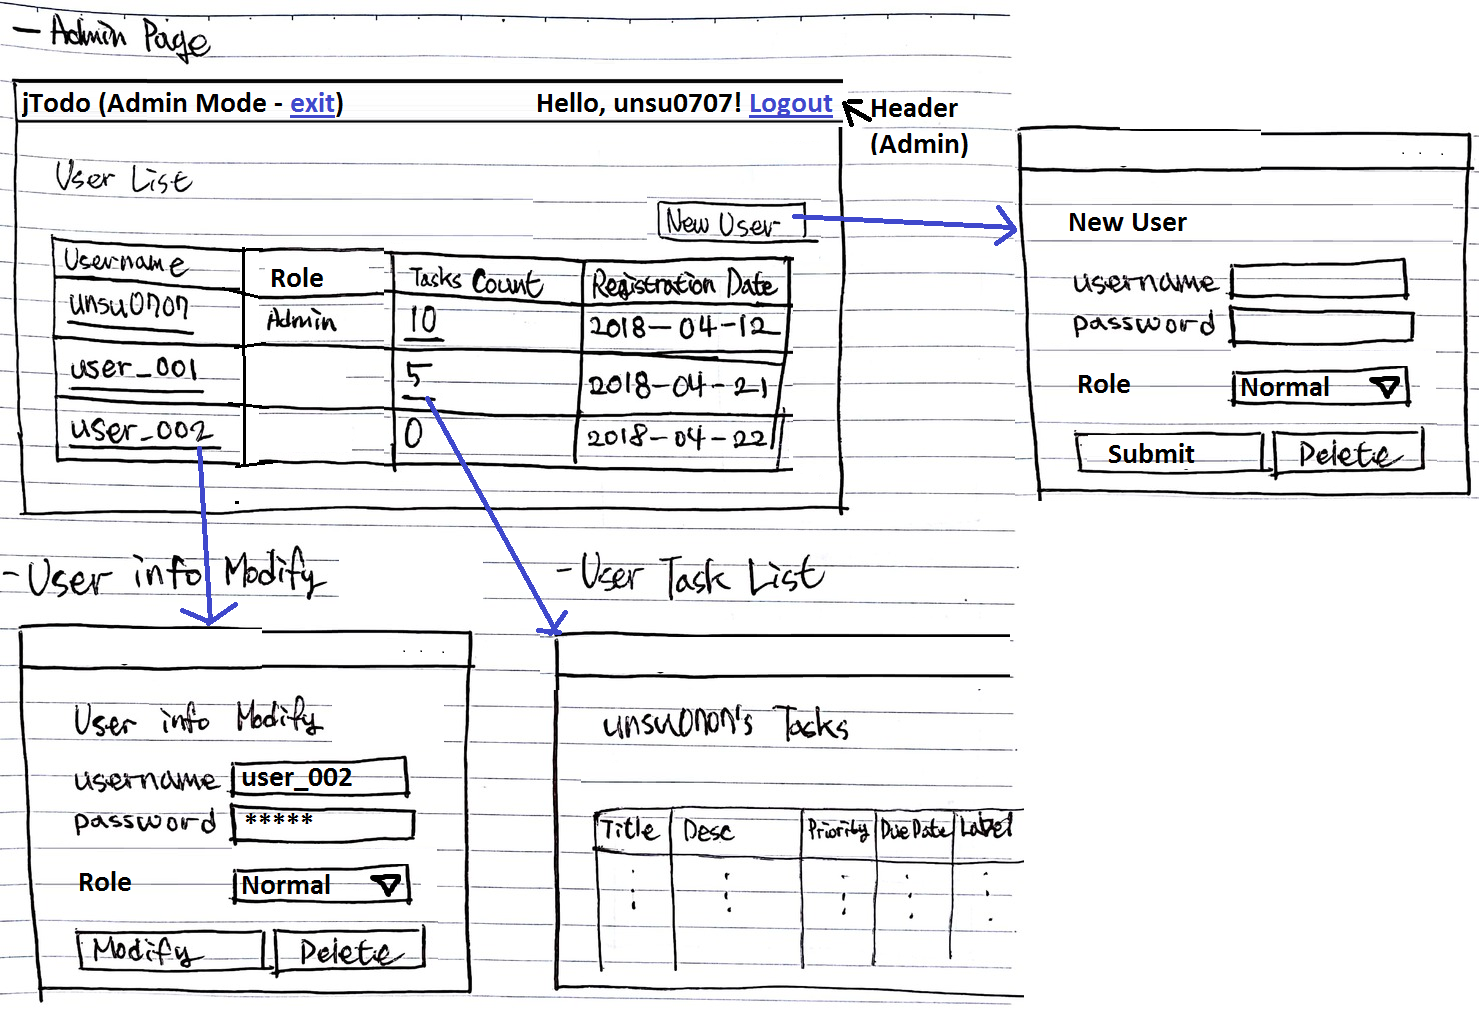 - Admin Page
jTodo (Admin Mode - exit) Hello, unsu0707! Logout
Header
(Admin)
User List
New User
Username Role Tasks Count Registration Date
unsu0707 Admin 10 2018-04-12
user_001 5 2018-04-21
user_002 0 2018-04-22
New User
username
password
Role Normal
Submit Delete
- User info Modify
User info Modify
username user_002
password *****
Role Normal
Modify Delete
- User Task List
unsu0707's Tasks
Title Desc Priority Due Date Label